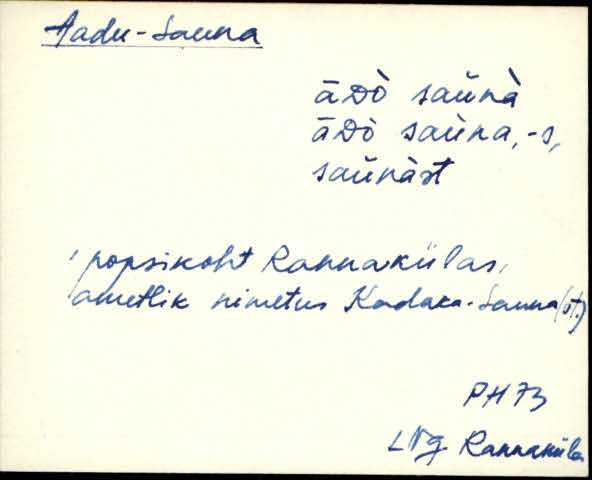 Aadu-Sauna
āDò saŭnà
āDò saŭna, -s,
saŭnàst
popsikoht Rannakülas,
ametlik nimetus Kadaka-Sauna (st.)
PH 73
LNg Rannaküla